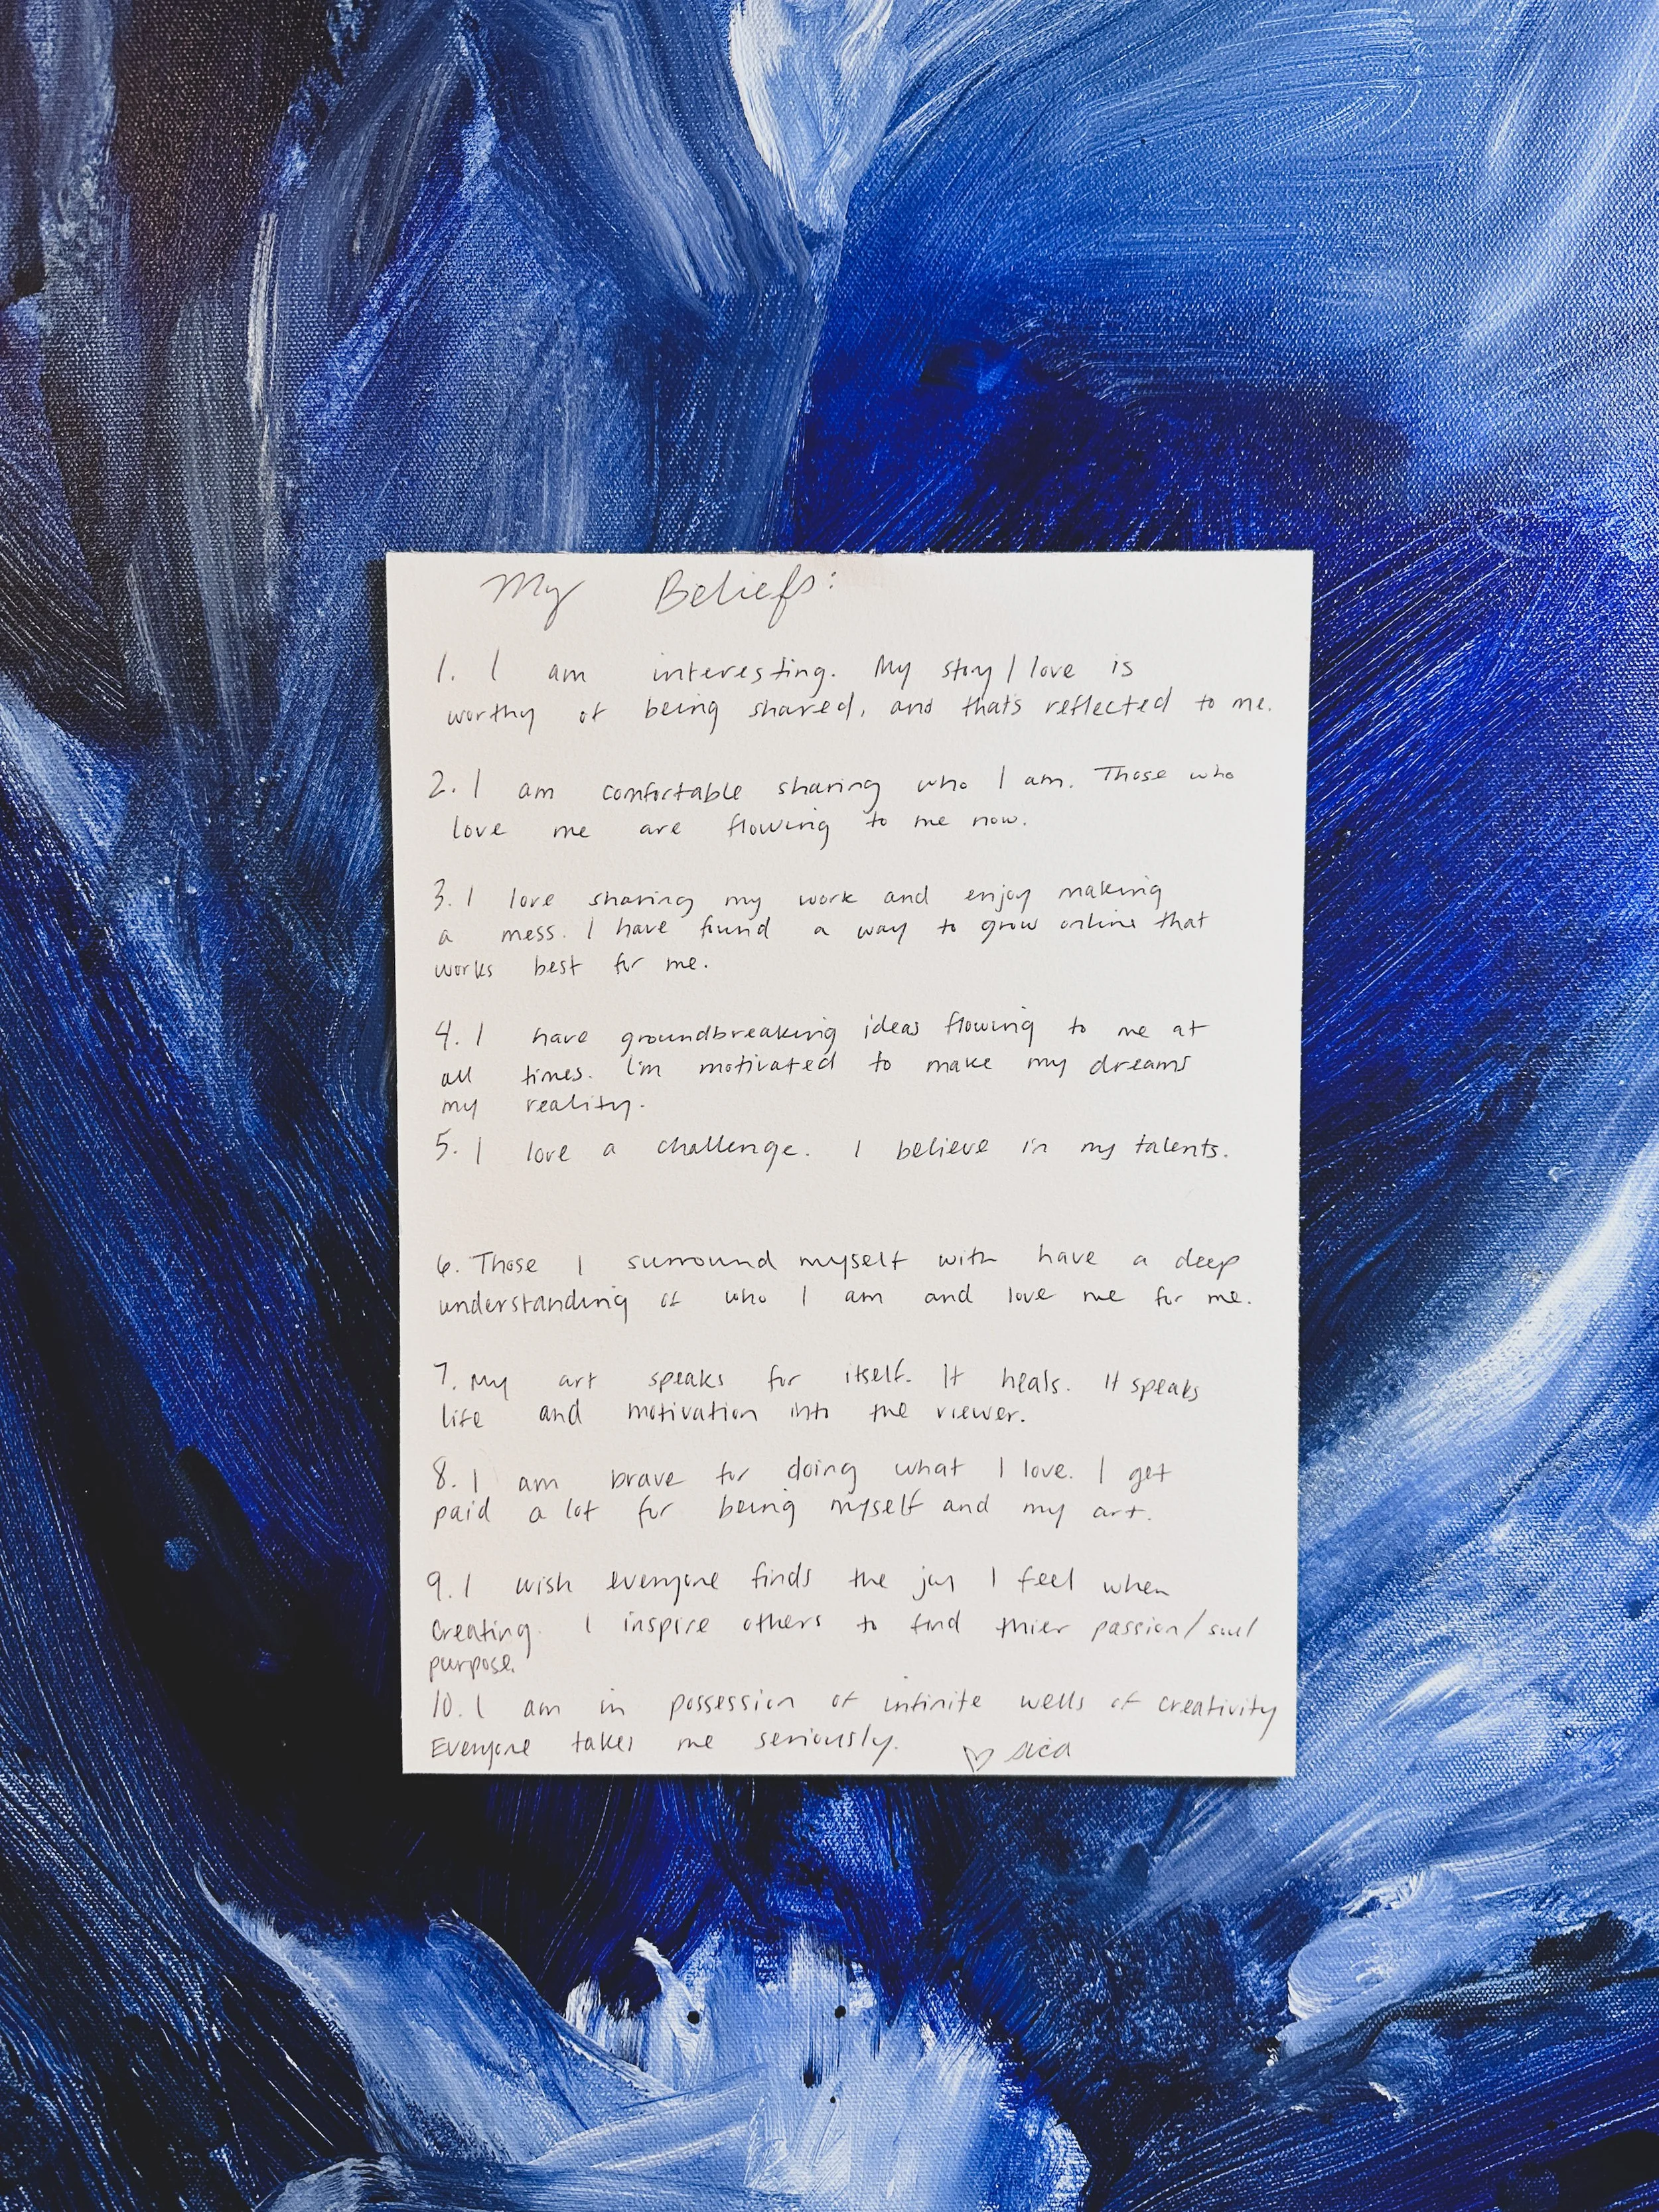 My Beliefs:
1. I am interesting. My story/love is
worthy of being shared, and thats reflected to me.
2. I am comfortable sharing who I am. Those who
love me are flowing to me now.
3. I love sharing my work and enjoy making
a mess. I have found a way to grow online that
works best for me.
4. I have groundbreaking ideas flowing to me at
all times. I'm motivated to make my dreams
my reality.
5. I love a challenge. I believe in my talents.
6. Those I surround myself with have a deep
understanding of who I am and love me for me.
7. My art speaks for itself. It heals. It speaks
life and motivation into the viewer.
8. I am brave for doing what I love. I get
paid a lot for being myself and my art.
9. I wish everyone finds the joy I feel when
creating. I inspire others to find thier passion/soul
purpose.
10. I am in possession of infinite wells of creativity
Everyone takes me seriously. ♡